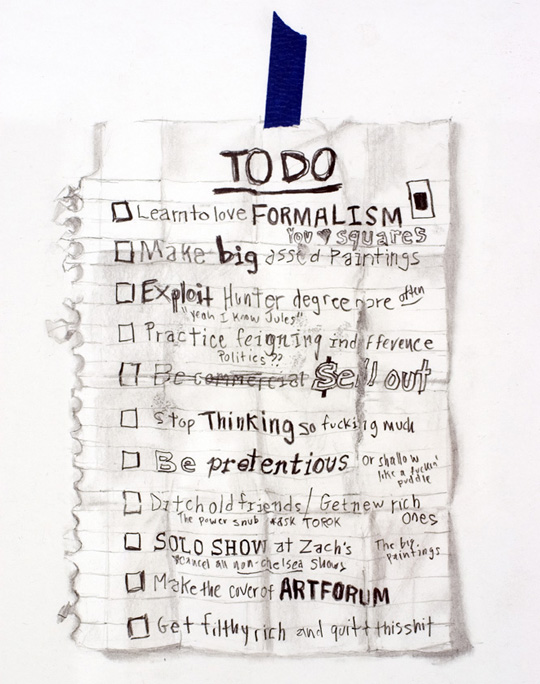 TO DO
Learn to love FORMALISM
You ♥ squares
Make big assed Paintings
Exploit Hunter degree more often
"yeah I know Jules"
Practice feigning indifference
Politics??
Be commercial $ell out
Stop Thinking so fucking much
Be pretentious or shallow
like a fuckin'
puddle
Ditch old friends/Get new rich
ones
The power snub *ask TOROK
SOLO SHOW at Zach's The big
paintings
*cancel all non-chelsea shows
Make the cover of ARTFORUM
Get filthy rich and quitt this shit